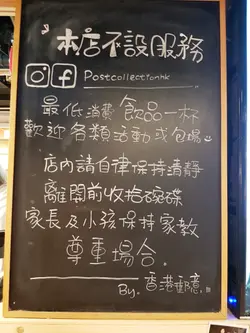 本店不設服務
Postcollectionhk
最低消費 飲品一杯
歡迎各類活動或包場
店內請自律保持清靜
離開前收拾碗碟
家長及小孩保持家教
尊重場合.
By. 香港郵意